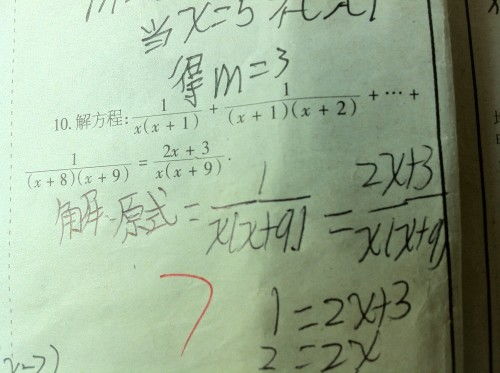 当x=5
得m=3
10.解方程: 1/x(x+1) + 1/(x+1)(x+2) + ⋯ +
1/(x+8)(x+9) = 2x+3/x(x+9).
解:原式= 1/x(x+9) = 2x+3/x(x+9)
1=2x+3
2=2x